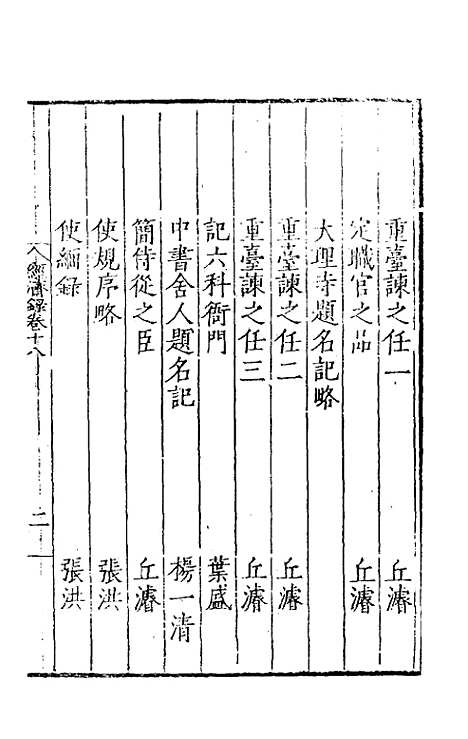 重臺諫之任一 丘濬
定職官之品 丘濬
大理寺題名記略
重臺諫之任二 丘濬
重臺諫之任三 丘濬
記六科衙門 葉盛
中書舍人題名記 楊一清
簡侍從之臣 丘濬
使規序略 張洪
使緬錄 張洪
經濟錄卷十八 二